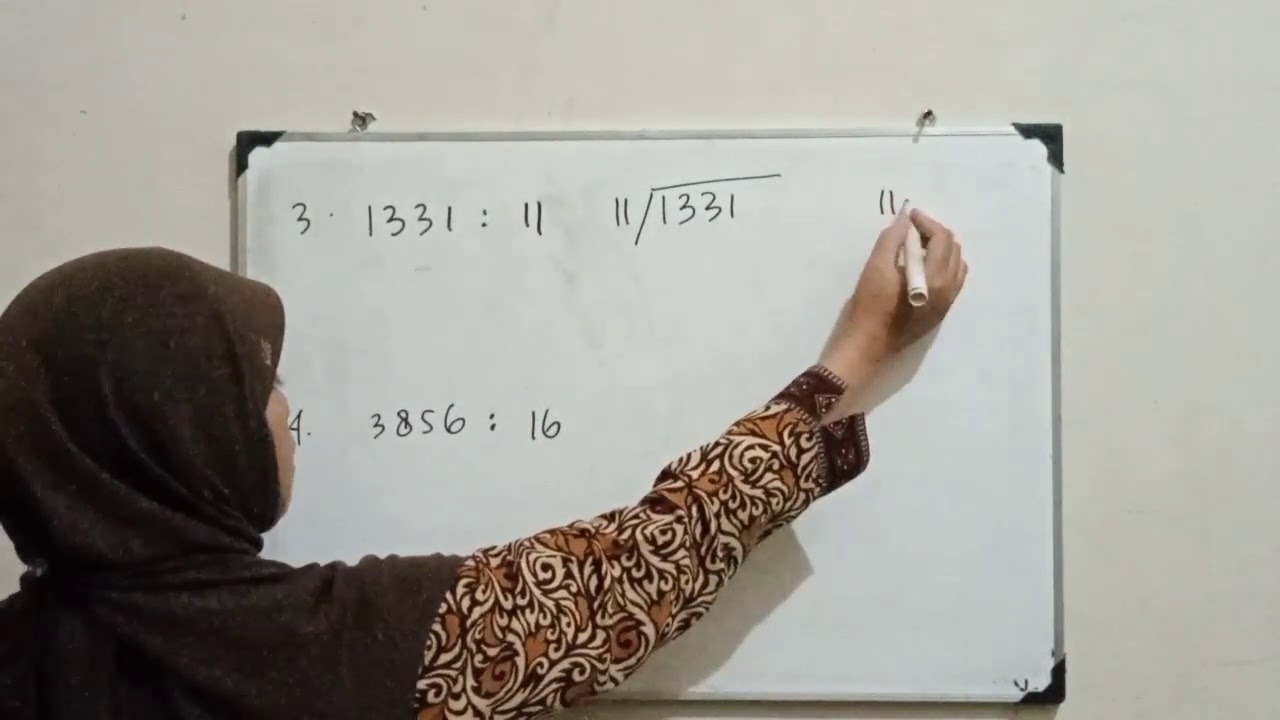 3. 1331 : 11 11/1331 11
4. 3856 : 16